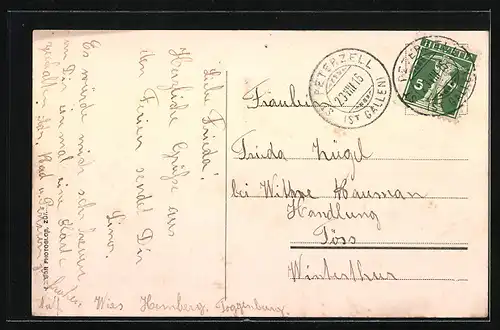 Liebe Frieda!
Herzliche Grüsse aus
den Ferien sendet Dir
Lina.
Es würde mich sehr freuen
von Dir einmal eine Karte
Wies Hemberg, Toggenburg.
ST. PETERZELL
23 VIII 15
(ST GALLEN)
HELVETIA
5
Fräulein
Frida Zügel
bei Witwe Hauman
Handlung
Töss
Winterthur
PHOTOGLOB, ZÜR